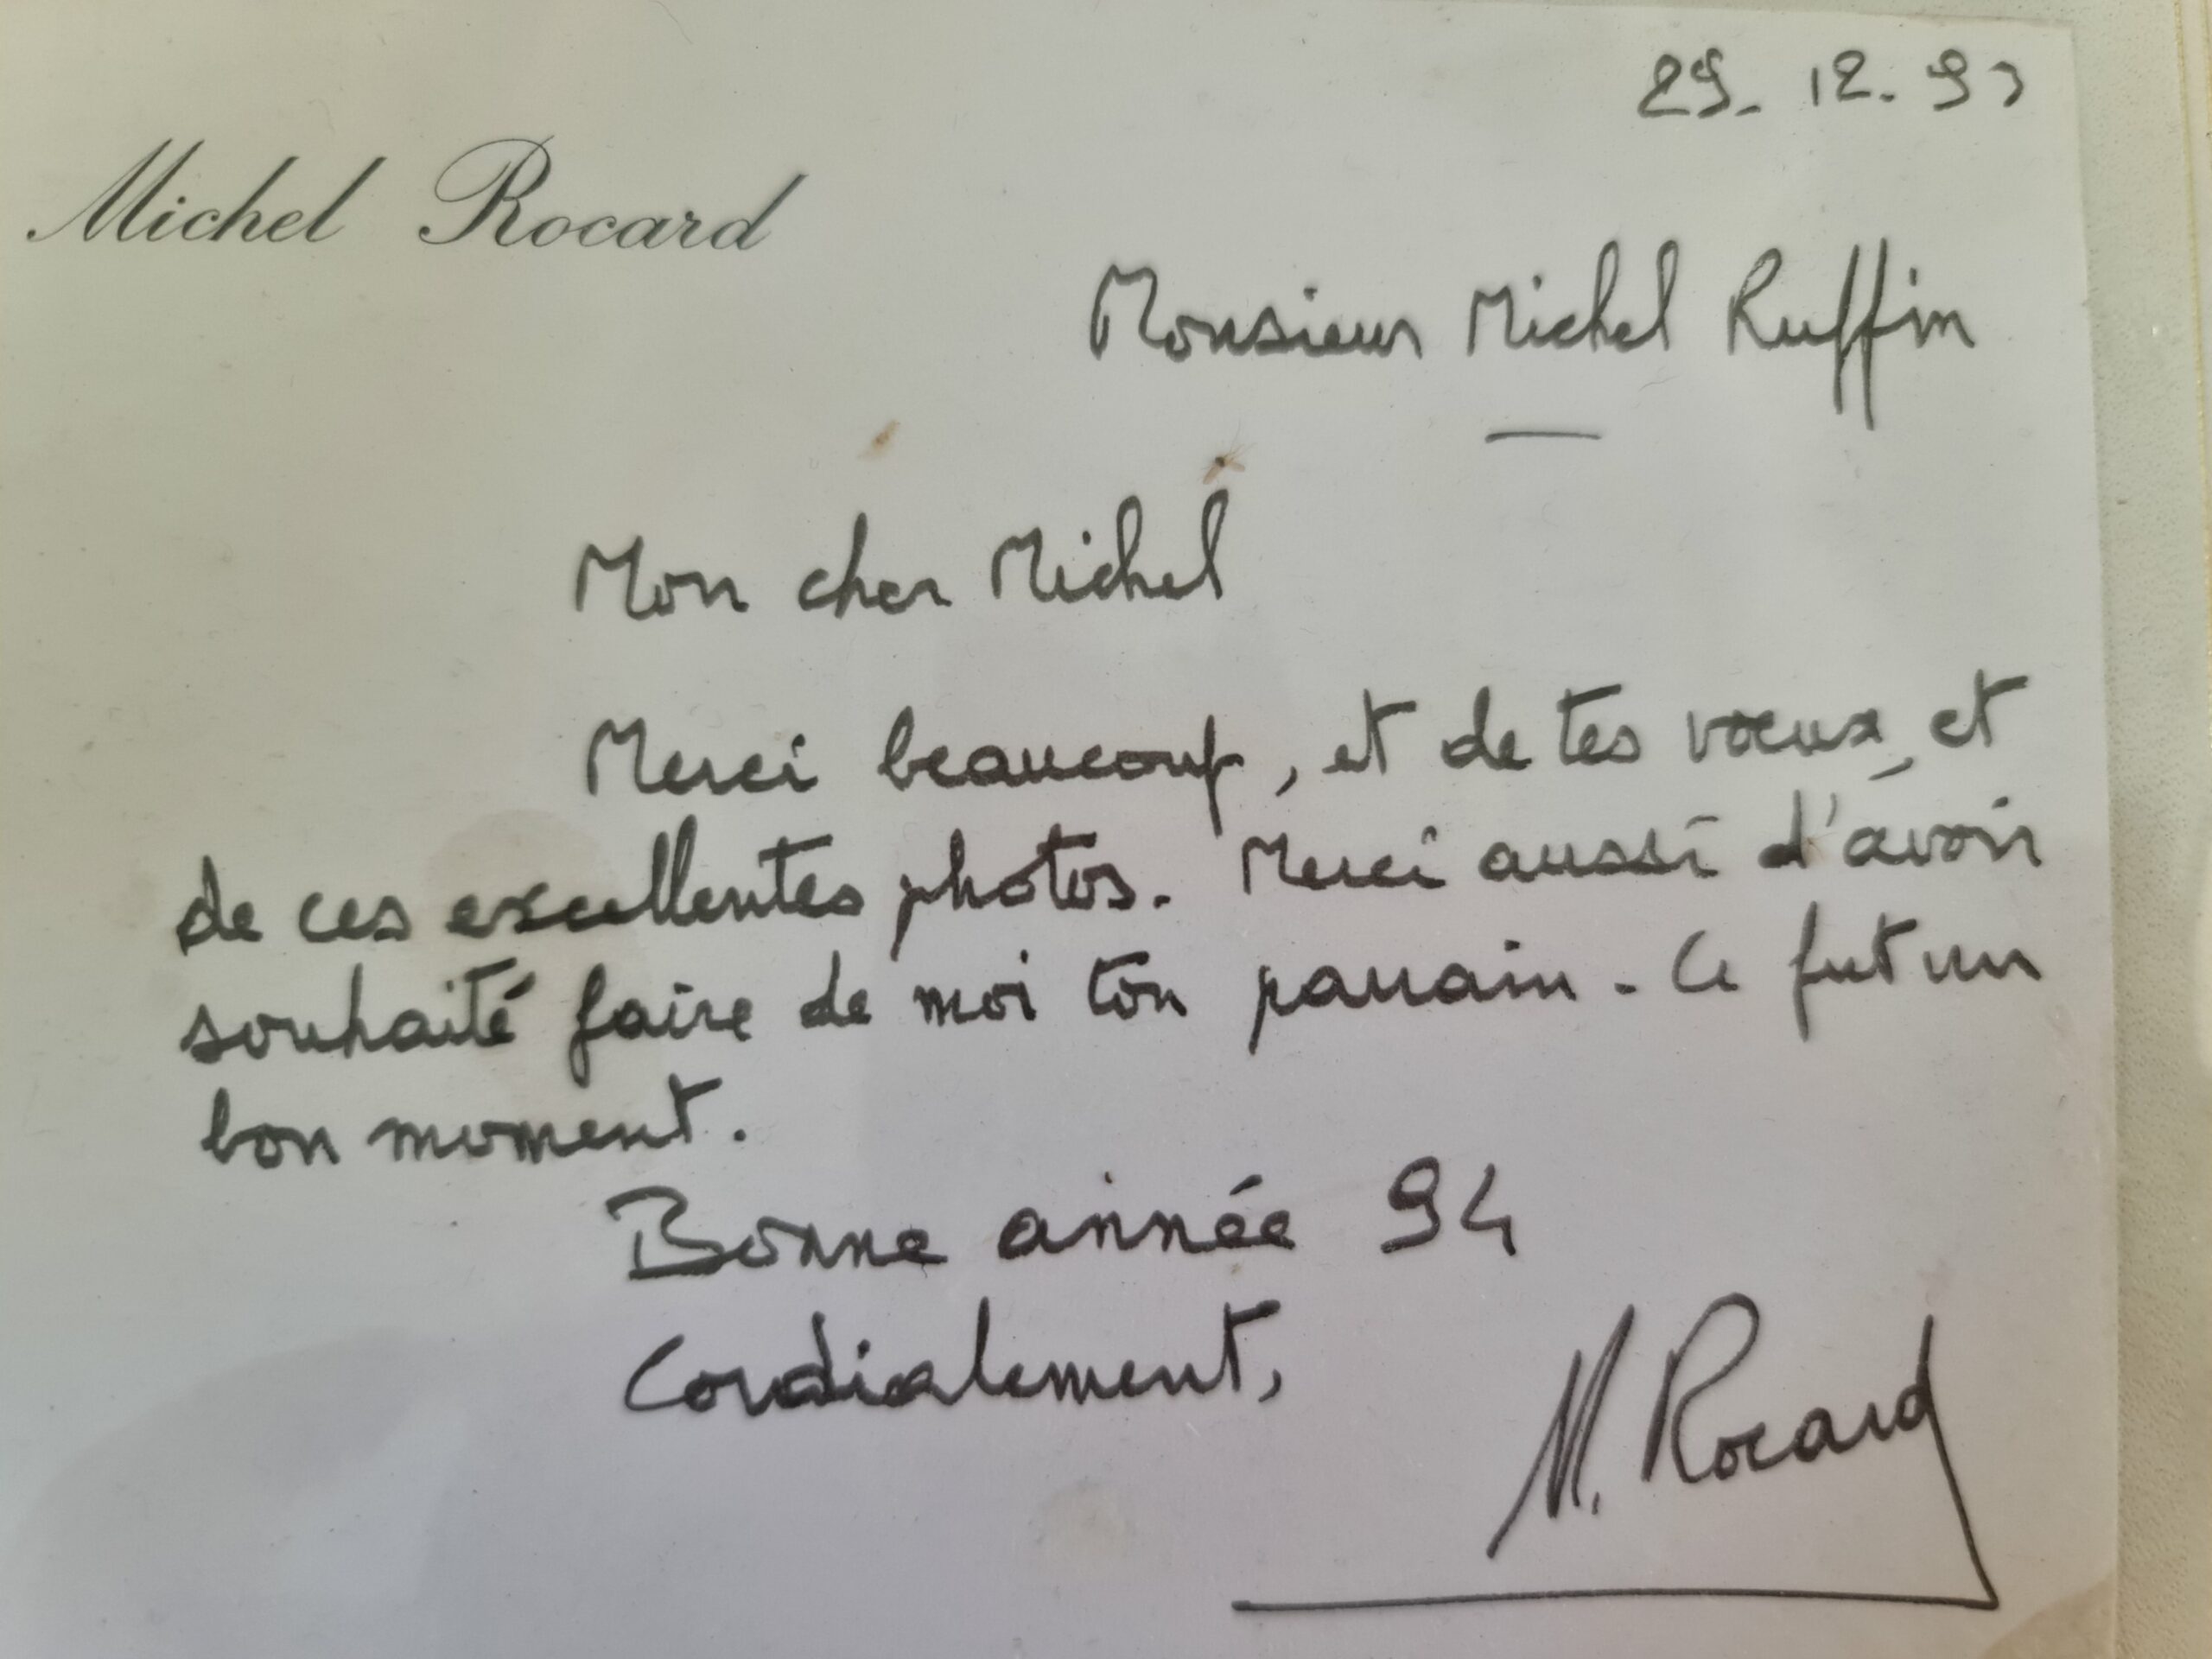 29. 12. 93
Michel Rocard
Monsieur Michel Ruffin
Mon cher Michel
Merci beaucoup, et de tes vœux, et
de ces excellentes photos. Merci aussi d'avoir
souhaité faire de moi ton parrain. Ce fut un
bon moment.
Bonne année 94
Cordialement,
M. Rocard